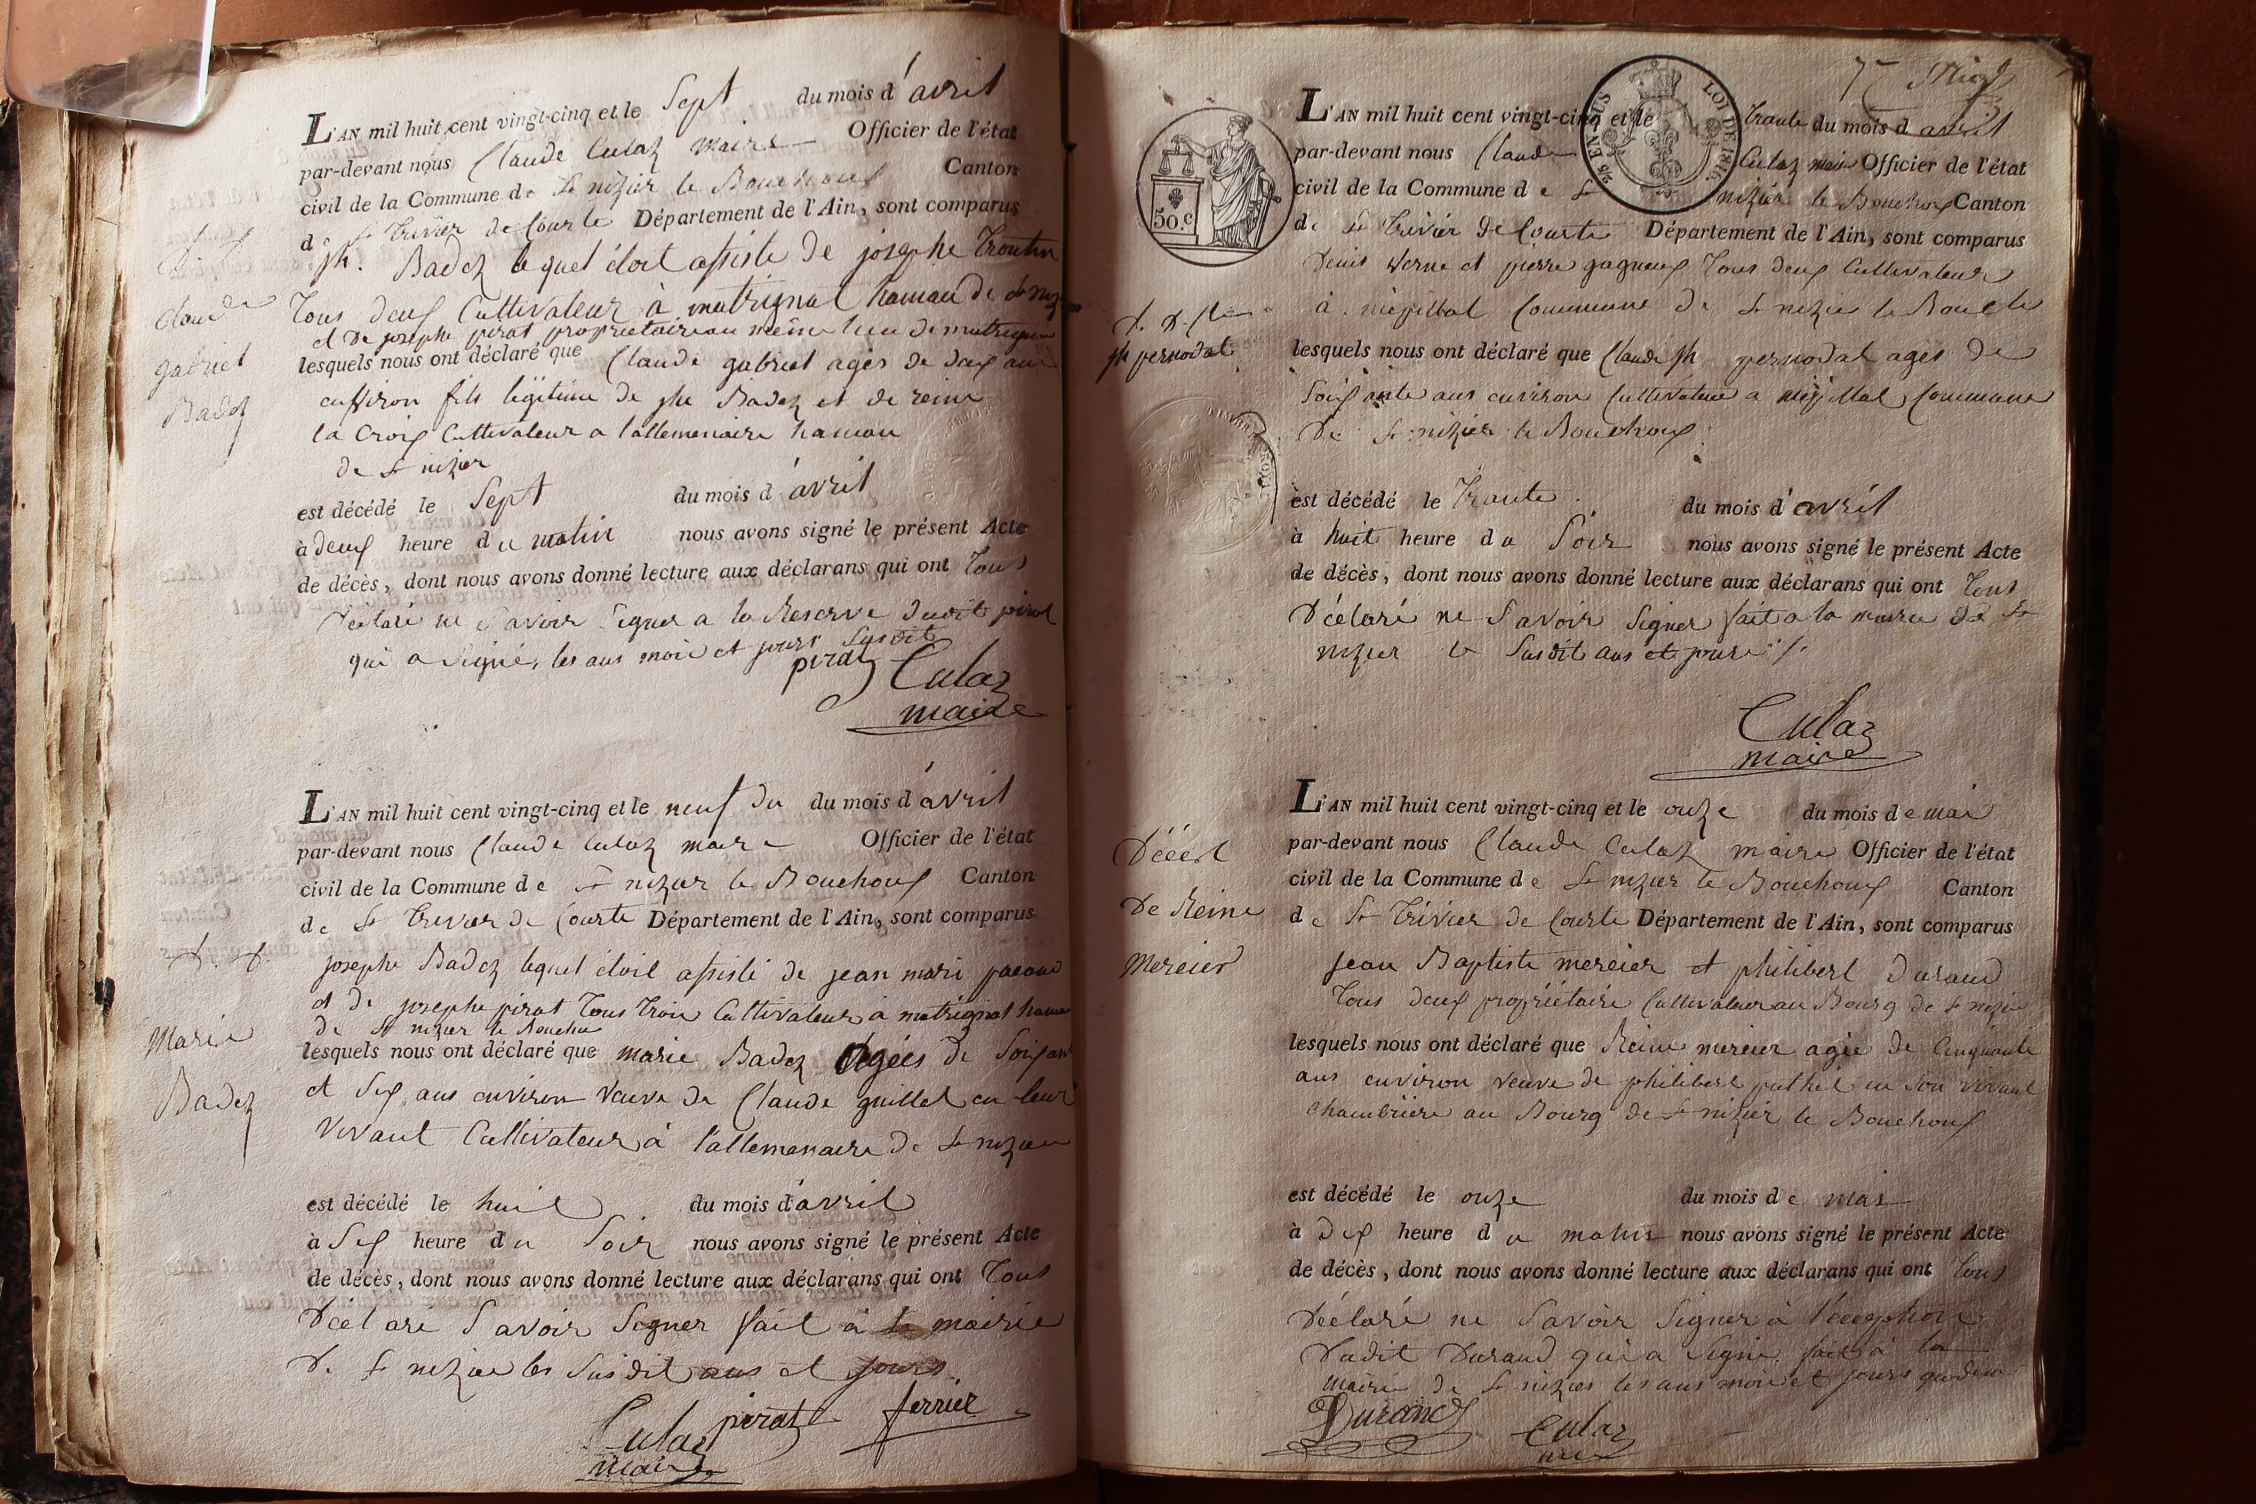 L'AN mil huit cent vingt-cinq et le Sept du mois d'avril
par-devant nous Claude Culaz maire Officier de l'état
civil de la Commune de St nizier le Bouchoux Canton
de St trivier de Courte Département de l'Ain, sont comparus
jh. Badez lequel étoit assisté de josephe
tous deux Cultivateur à matrignat hamau de St
et de josephe pirat propriétaire au même lieu de
lesquels nous ont déclaré que Claude gabriel agés de deux ans
environ fils légitime de jhe Badez et de reine
la Croix Cultivateur a lallemenaire hamau
de St nizier
Claude
gabriel
Badez
est décédé le Sept du mois d'avril
à deux heure du matin nous avons signé le présent Acte
de décès, dont nous avons donné lecture aux déclarans qui ont tous
déclaré ne Savoir Signer a la Reserve dudit pirat
qui a Signé, les ans mois et jours Susdit
pirat Culaz
maire
L'AN mil huit cent vingt-cinq et le neuf du du mois d'avril
par-devant nous Claude Culaz maire Officier de l'état
civil de la Commune de St nizier le Bouchoux Canton
de St trivier de Courte Département de l'Ain, sont comparus
D. D.
josephe Badez lequel étoit assisté de jean mari
et de josephe pirat tous trois Cultivateur à matrignat
de St nizier le Bouchu
Marie
Badez
lesquels nous ont déclaré que marie Badez agées de
et Six ans environ veuve de Claude guillet en leur
vivant Cultivateur à lallemenaire de St nizier
est décédé le huit du mois d'avril
à Six heure du Soir nous avons signé le présent Acte
de décès, dont nous avons donné lecture aux déclarans qui ont tous
Déclare Savoir Signer fait à la mairie
De St nizier les Susdit ans et jours
Culaz pirat ferrier
maire
50.c
EN SUS LOI DE 1816.
L'AN mil huit cent vingt-cinq et le trante du mois d avril
par-devant nous Claude Culaz maire Officier de l'état
civil de la Commune de St nizier le Bouchoux Canton
de St trivier de Courte Département de l'Ain, sont comparus
Denis Verne et pierre gagneux tous deux Cultivateur
à Commune de St nizier le Bouch
jh pernodat
lesquels nous ont déclaré que Claude jh pernodat agés de
Soixante ans environ Cultivateur a Commune
De St nizier le Bouchoux
est décédé le trante du mois d'avril
à huit heure du Soir nous avons signé le présent Acte
de décès, dont nous avons donné lecture aux déclarans qui ont tous
Déclaré ne Savoir Signer fait a la mairie de St
nizier le Susdit ans et jours
Culaz
maire
L'AN mil huit cent vingt-cinq et le onze du mois de mai
par-devant nous Claude Culaz maire Officier de l'état
civil de la Commune de St nizier le Bouchoux Canton
de St trivier de Courte Département de l'Ain, sont comparus
Décét
De Reine
Mercier
jean Baptiste mercier et philibert durand
tous deux propriétaire Cultivateur au Bourg de St nizier
lesquels nous ont déclaré que Reine mercier agée de Cinquante
ans environ veuve de philibert en Son vivant
chambrière au Bourg de St nizier le Bouchoux
est décédé le onze du mois de mai
à dix heure du matin nous avons signé le présent Acte
de décès, dont nous avons donné lecture aux déclarans qui ont tous
Déclaré ne Savoir Signer à
Dudit Durand qui a Signé fait à la
mairie de St nizier les ans mois et jours que dessus
Durand Culaz